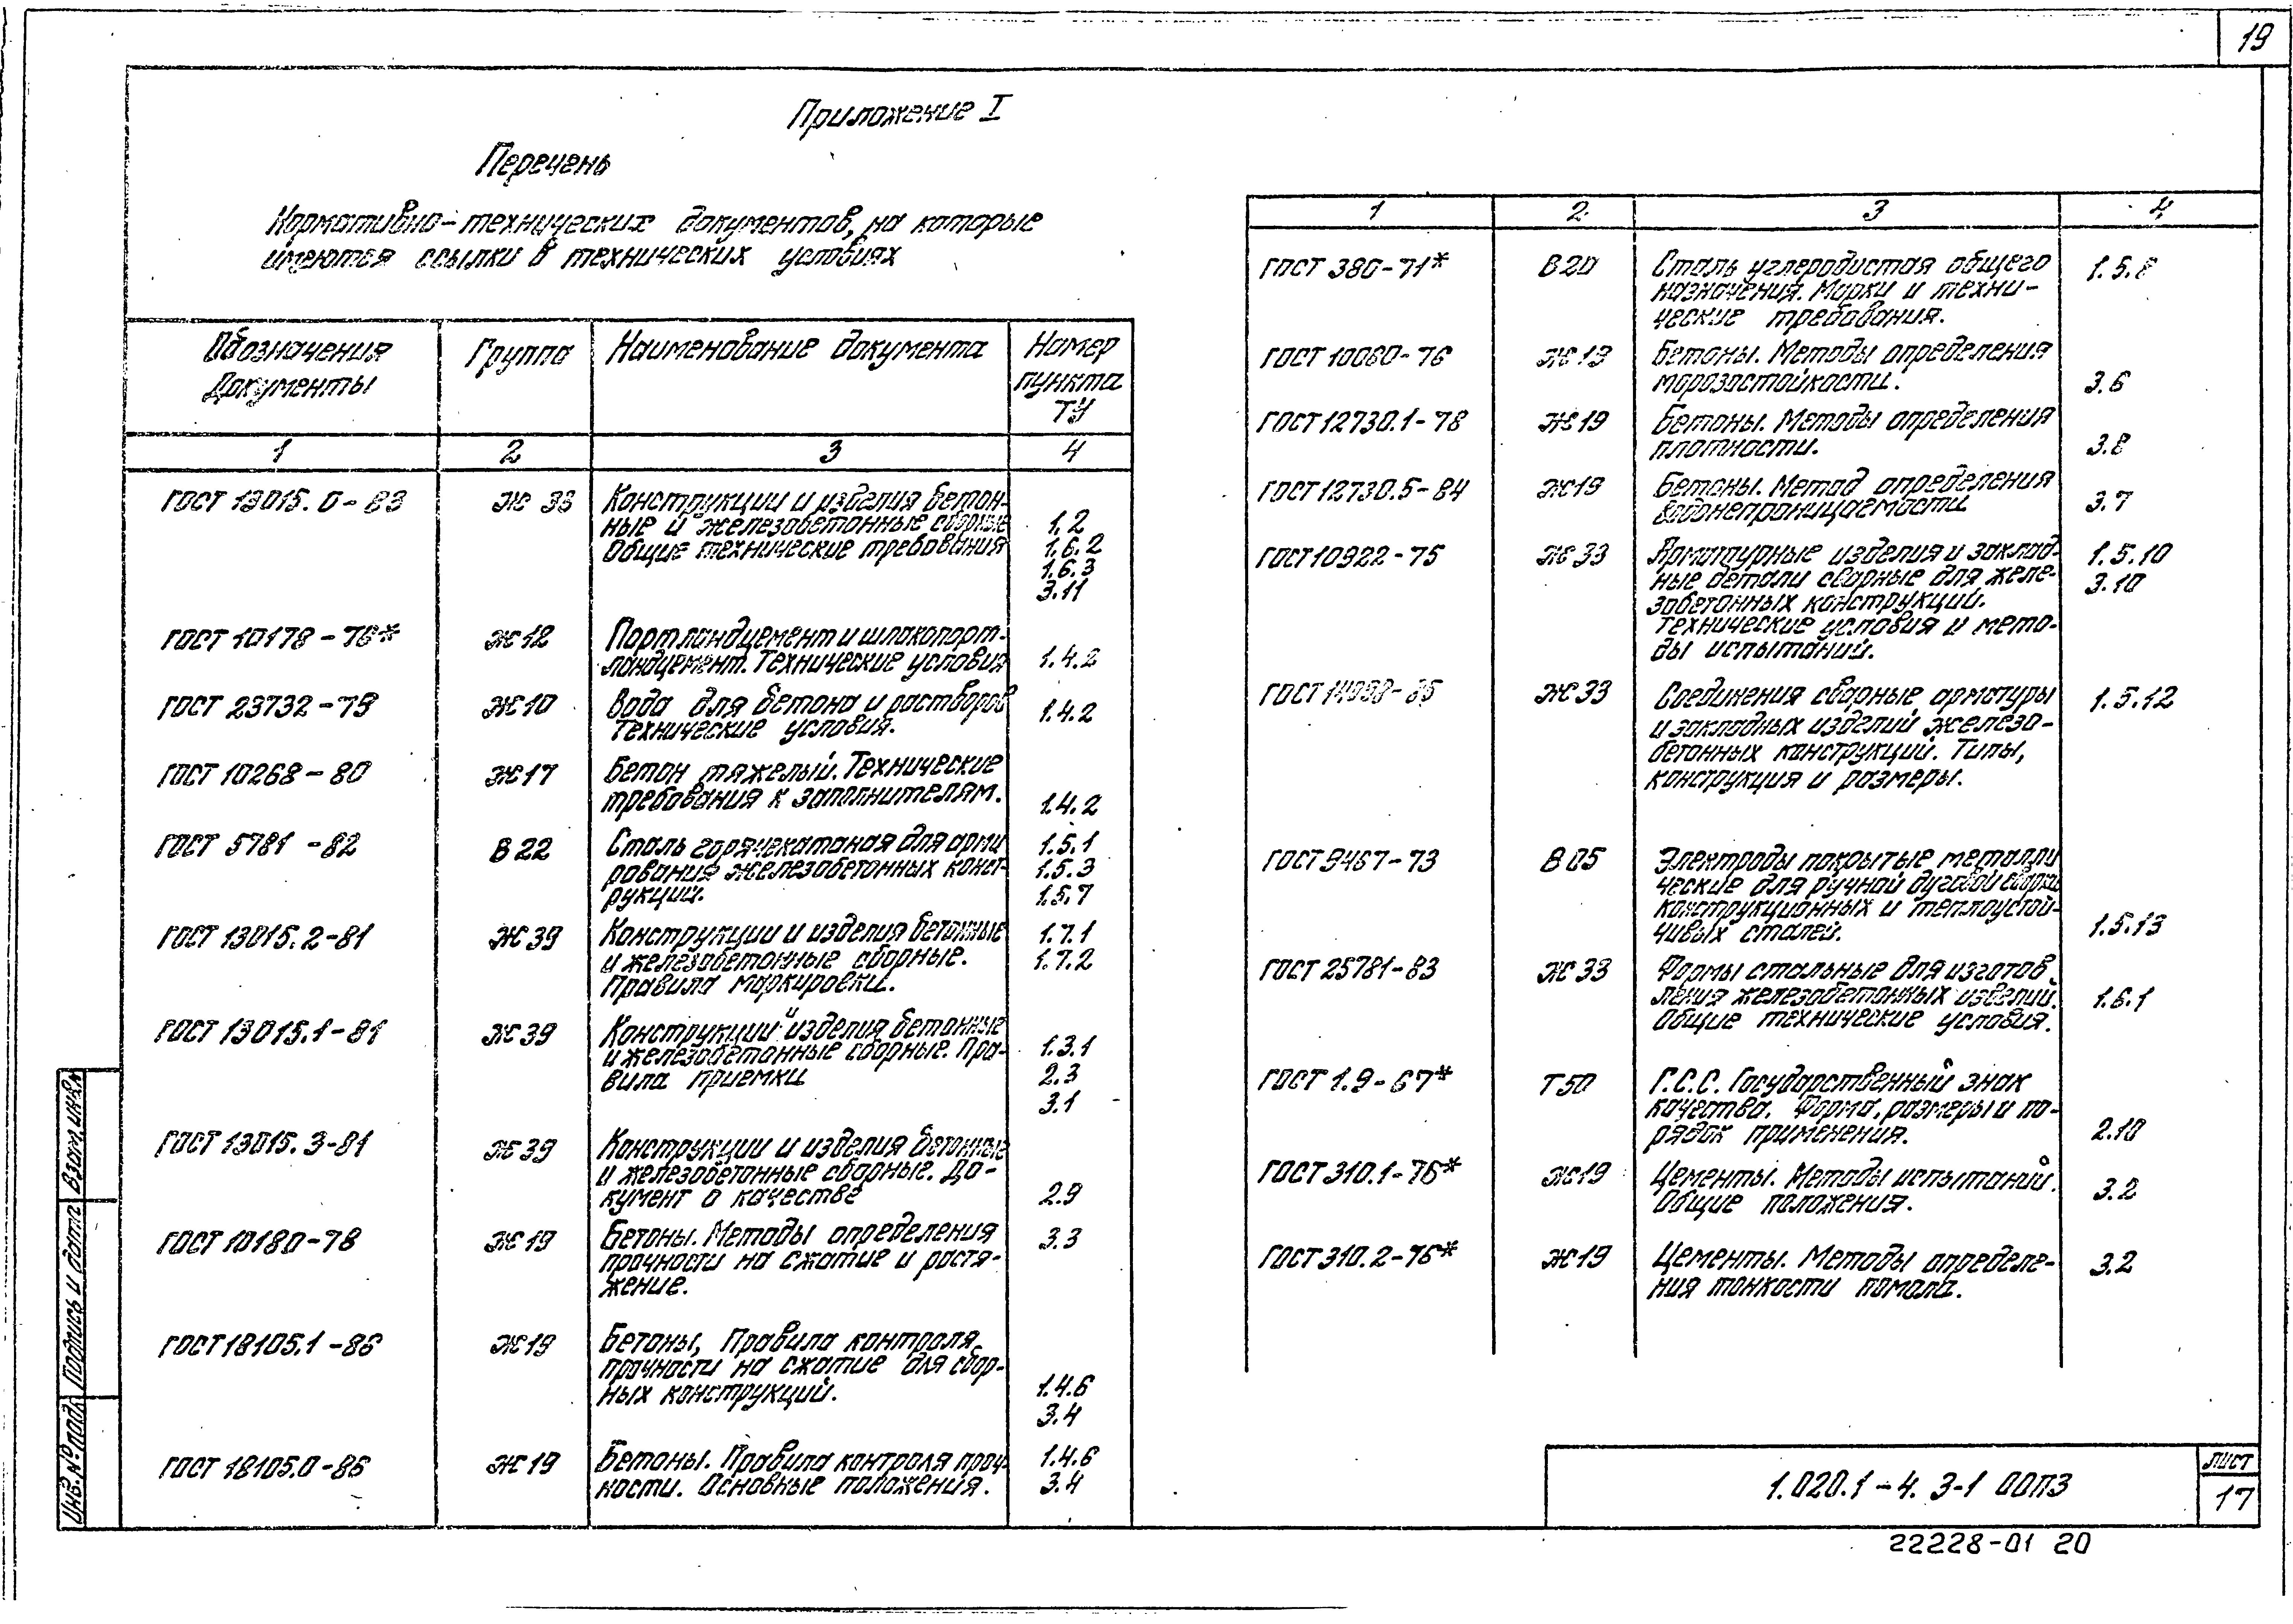 19
Приложение I
Перечень
Нормативно-технических документов, на которые
имеются ссылки в технических условиях
Обозначения
Документы
Группа
Наименование документа
Номер
пункта
ТУ
1 2 3 4
ГОСТ 13015.0-83 Ж33 Конструкции и изделия бетон-
ные и железобетонные сборные
Общие технические требования
1.2
1.6.2
1.6.3
3.11
ГОСТ 10178-76* Ж12 Портландцемент и шлакопорт-
ландцемент. Технические условия 1.4.2
ГОСТ 23732-79 Ж10 Вода для бетона и растворов
Технические условия. 1.4.2
ГОСТ 10268-80 Ж17 Бетон тяжелый. Технические
требования к заполнителям. 1.4.2
ГОСТ 5781-82 В22 Сталь горячекатаная для арми 1.5.1
рования железобетонных конст- 1.5.3
рукций. 1.5.7
ГОСТ 13015.2-81 Ж39 Конструкции и изделия бетонные 1.7.1
и железобетонные сборные. 1.7.2
Правила маркировки.
ГОСТ 13015.1-81 Ж39 Конструкции и изделия бетонные
и железобетонные сборные. Пра- 1.3.1
вила приемки 2.3
3.1
ГОСТ 13015.3-81 Ж39 Конструкции и изделия бетонные
и железобетонные сборные. До-
кумент о качестве 2.9
ГОСТ 10180-78 Ж19 Бетоны. Методы определения 3.3
прочности на сжатие и растя-
жение.
ГОСТ 18105.1-86 Ж19 Бетоны, Правила контроля
прочности на сжатие для сбор-
ных конструкций. 1.4.6
3.4
ГОСТ 18105.0-86 Ж19 Бетоны. Правила контроля проч- 1.4.6
ности. Основные положения. 3.4
1 2 3 4
ГОСТ 380-71* В20 Сталь углеродистая общего 1.5.8
назначения. Марки и техни-
ческие требования.
ГОСТ 10060-76 Ж19 Бетоны. Методы определения
морозостойкости. 3.6
ГОСТ 12730.1-78 Ж19 Бетоны. Методы определения
плотности. 3.8
ГОСТ 12730.5-84 Ж19 Бетоны. Метод определения
водонепроницаемости 3.7
ГОСТ 10922-75 Ж33 Арматурные изделия и заклад- 1.5.10
ные детали сварные для желе- 3.10
зобетонных конструкций.
Технические условия и мето-
ды испытаний.
ГОСТ 14098-85 Ж33 Соединения сварные арматуры 1.5.12
и закладных изделий железо-
бетонных конструкций. Типы,
конструкция и размеры.
ГОСТ 9467-73 В05 Электроды покрытые металли
ческие для ручной дуговой сварки
конструкционных и теплоустой-
чивых сталей. 1.5.13
ГОСТ 25781-83 Ж33 Формы стальные для изготов
ления железобетонных изделий. 1.6.1
Общие технические условия.
ГОСТ 1.9-67* Т50 Г.С.С. Государственный знак
качества. Форма, размеры и по-
рядок применения. 2.10
ГОСТ 310.1-76* Ж19 Цементы. Методы испытаний.
Общие положения. 3.2
ГОСТ 310.2-76* Ж19 Цементы. Методы определе- 3.2
ния тонкости помола.
Взам. инв. №
Подпись и дата
Инв. № подл
1.020.1-4. 3-1 00ПЗ
лист
17
22228-01 20